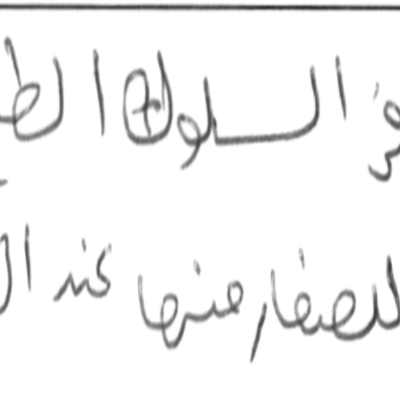 في السلوك الط
للصغار منها عند ال